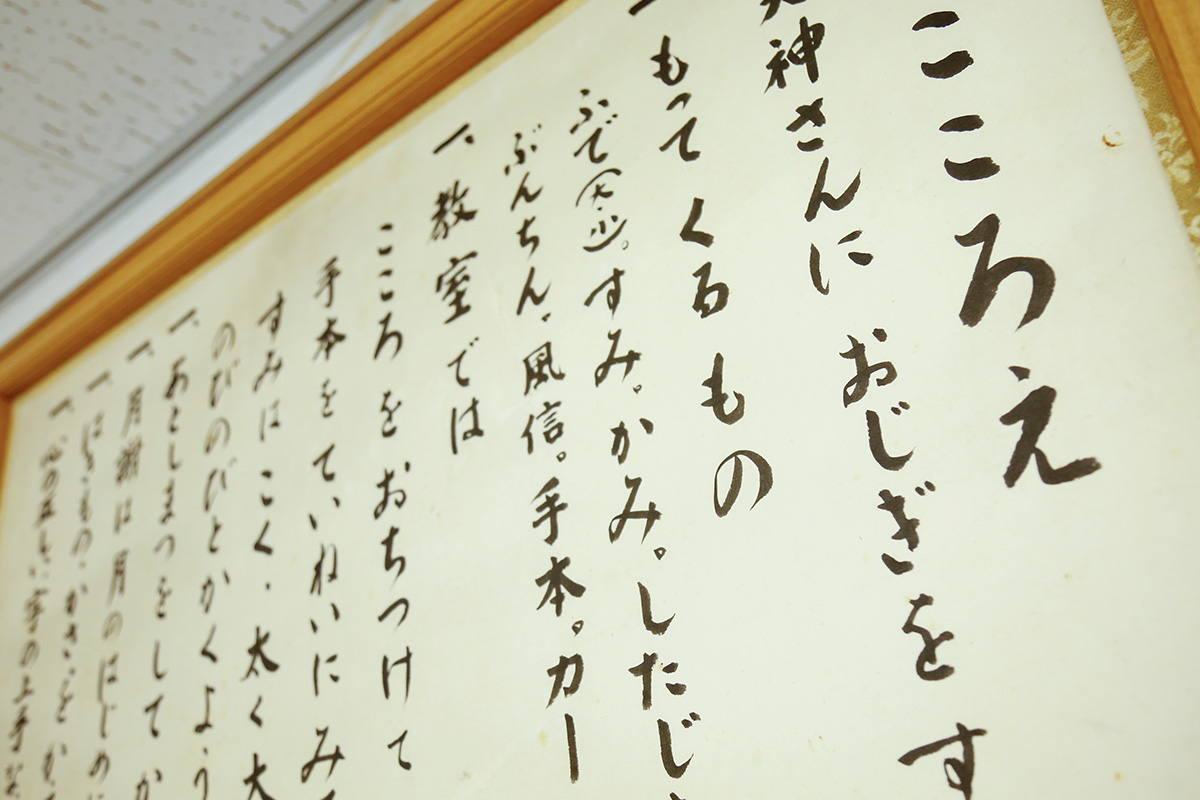 こころえ
神さんに おじぎをす
もってくるもの
ふで(大.小)。すみ。かみ。したじ
ぶんちん、風信。手本。カー
一、教室では
こころをおちつけて
手本をていねいにみ
すみはこく、太く大
のびのびとかくよう
一、あとしまつをしてか
一、月謝は月のはじめ
一、はきもの、かさ、をか
一、心の正しい字の上手な